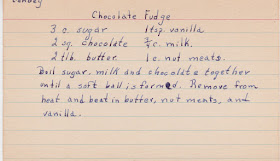 Candy
Chocolate Fudge
3 c. sugar 1 tsp. vanilla
2 sq. chocolate ¾ c. milk.
2 tlb. butter 1 c. nut meats.
Boil sugar, milk and chocolate together
until a soft ball is formed. Remove from
heat and beat in butter, nut meats, and
vanilla.